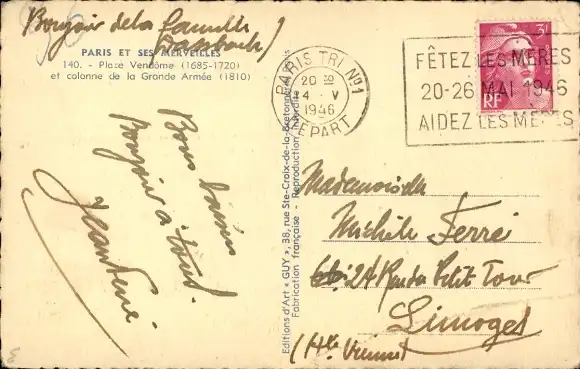 Bonjour de la famille
PARIS ET SES MERVEILLES
140. - Place Vendôme (1685-1720)
et colonne de la Grande Armée (1810)
Bons baisers
Bonjour à tous.
Editions d'Art « GUY », 38, rue Ste-Croix-de-la-Bretonnerie, Paris
Fabrication française - Reproduction interdite
PARIS TRI Nº1
20 30
14 - V
1946
DEPART
FÊTEZ LES MÈRES
20-26 MAI 1946
AIDEZ LES MÈRES
3F
RF
Mademoiselle
Michèle Ferré
24 Rue du Petit Tour
Limoges
(Hte Vienne)